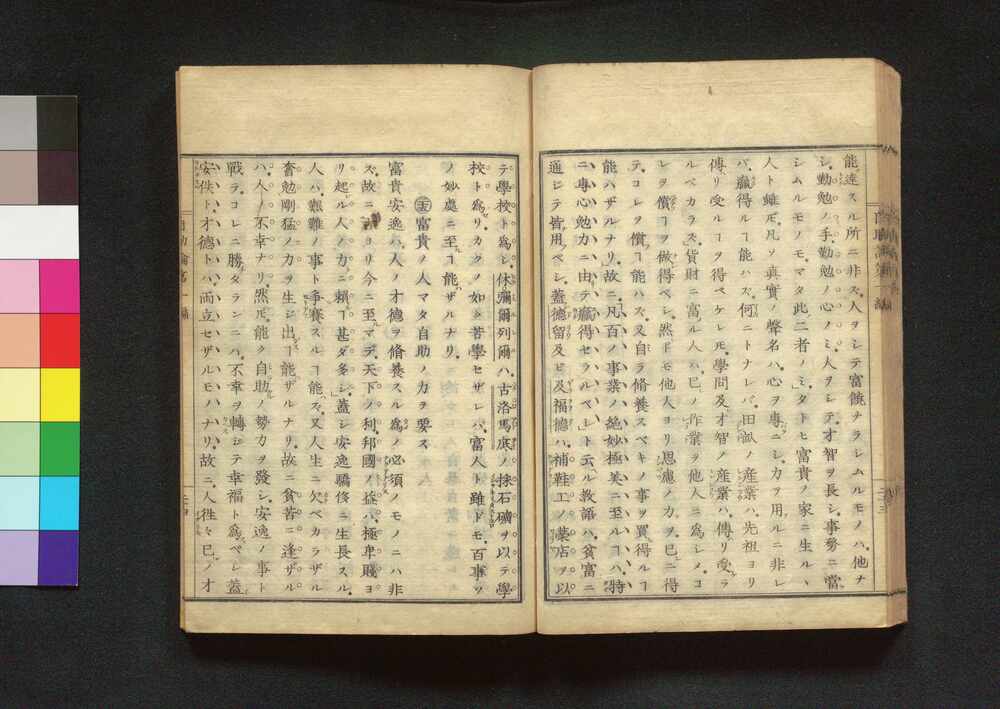 能達スル所ニ非ズ、人ヲシテ富饒ナラシムルモノハ、他ナ
シ、勤勉ノ手、勤勉ノ心ノミ、人ヲシテ、才智ヲ長シ、事務ニ當
シムルモノモ、マタ此二者ノミ、タトヒ富貴ノ家ニ生ルヽ
人ト雖𪜈、凡ソ真實ノ聲名ハ、心ヲ専ニシ、力ヲ用ルニ非レ
バ、贏得ルヿ能ハズ、何ニトナレバ、田畝ノ産業ハ、先祖ヨリ
傳リ受ルヿヲ得ベケレ𪜈、學問及才智ノ産業ハ、傳リ受ラ
ルベカラズ、貨財ニ富ル人ハ、已ノ作業ヲ他人ニ為シメ、コ
レヲ償フヿヲ做得ベシ、然ド𪜈他人ヨリ思慮ノ力ヲ、已ニ得
テ、コレヲ償フヿ能ハズ、又自ラ脩養スベキノ事ヲ買得ルヿ
能ハザルナリ、故ニ、凡百ノ事業ハ、絶妙極美ニ至ルヿハ、特
ニ、専心勉力ニ由テ、贏得セラルベシト云ヘル教語ハ、貧富ニ
通ジテ皆用ベシ、蓋德留及ビ及福德ハ、補鞋工ノ藥店ヲ以
テ學校ト為シ、休彌爾列爾ハ、古洛馬底ノ採石礦ヲ以テ學
校ト為リ、カクノ如ク苦學セザレバ、富人ト雖ドモ、百事ソ
ノ妙處ニ至ルヿ能ザルナリ、
㊄富貴ノ人マタ自助ノ力ヲ要ス
富貴安逸ハ、人ノ才德ヲ脩養スル為ノ必須ノモノニハ非
ズ、故ニ、古ヨリ今ニ至マデ、天下ノ利、邦國ノ益ハ、極卑賤ヨ
リ起ル人ノ力ニ頼ルヿ甚ダ多シ、蓋シ安逸驕侈ニ生長スル
人ハ、艱難ノ事ト爭賽スルヿ能ズ、又人生ニ欠ベカラザル
奮勉剛猛ノ力ヲ生ジ出スヿ能ザルナリ、故ニ貧苦ニ逢ザル
ハ、人ノ不幸ナリ、然𪜈、能ク自助ノ勢力ヲ發シ、安逸ノ事ト
戰テ、コレニ勝タランニハ、不幸ヲ轉ジテ幸福ト為ベシ、蓋
安佚ト才德トハ、両立セザルモノナリ、故ニ、人徃々已ノ才